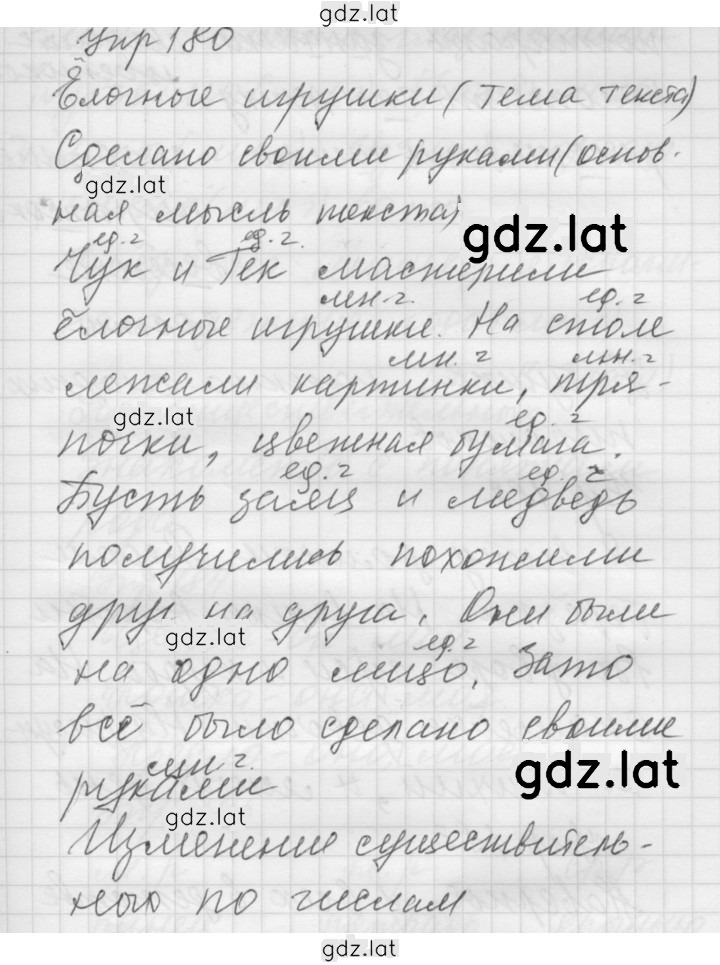 gdz.lat
Упр 180
Ёлочные игрушки (тема текста)
Сделано своими руками (основ-
gdz.lat
ная мысль текста)
gdz.lat
ед.ч ед.ч.
Чук и Гек мастерили
мн.ч. ед.ч
ёлочные игрушки. На столе
мн.ч мн.ч
лежали картинки, тря-
gdz.lat
ед.ч
почки, цветная бумага.
ед.ч ед.ч
Пусть заяц и медведь
получились похожими
друг на друга. Они были
gdz.lat
ед.ч
на одно лицо. Зато
всё было сделано своими
gdz.lat
мн ч.
руками
gdz.lat
Изменение существитель-
ного по числам
gdz.lat